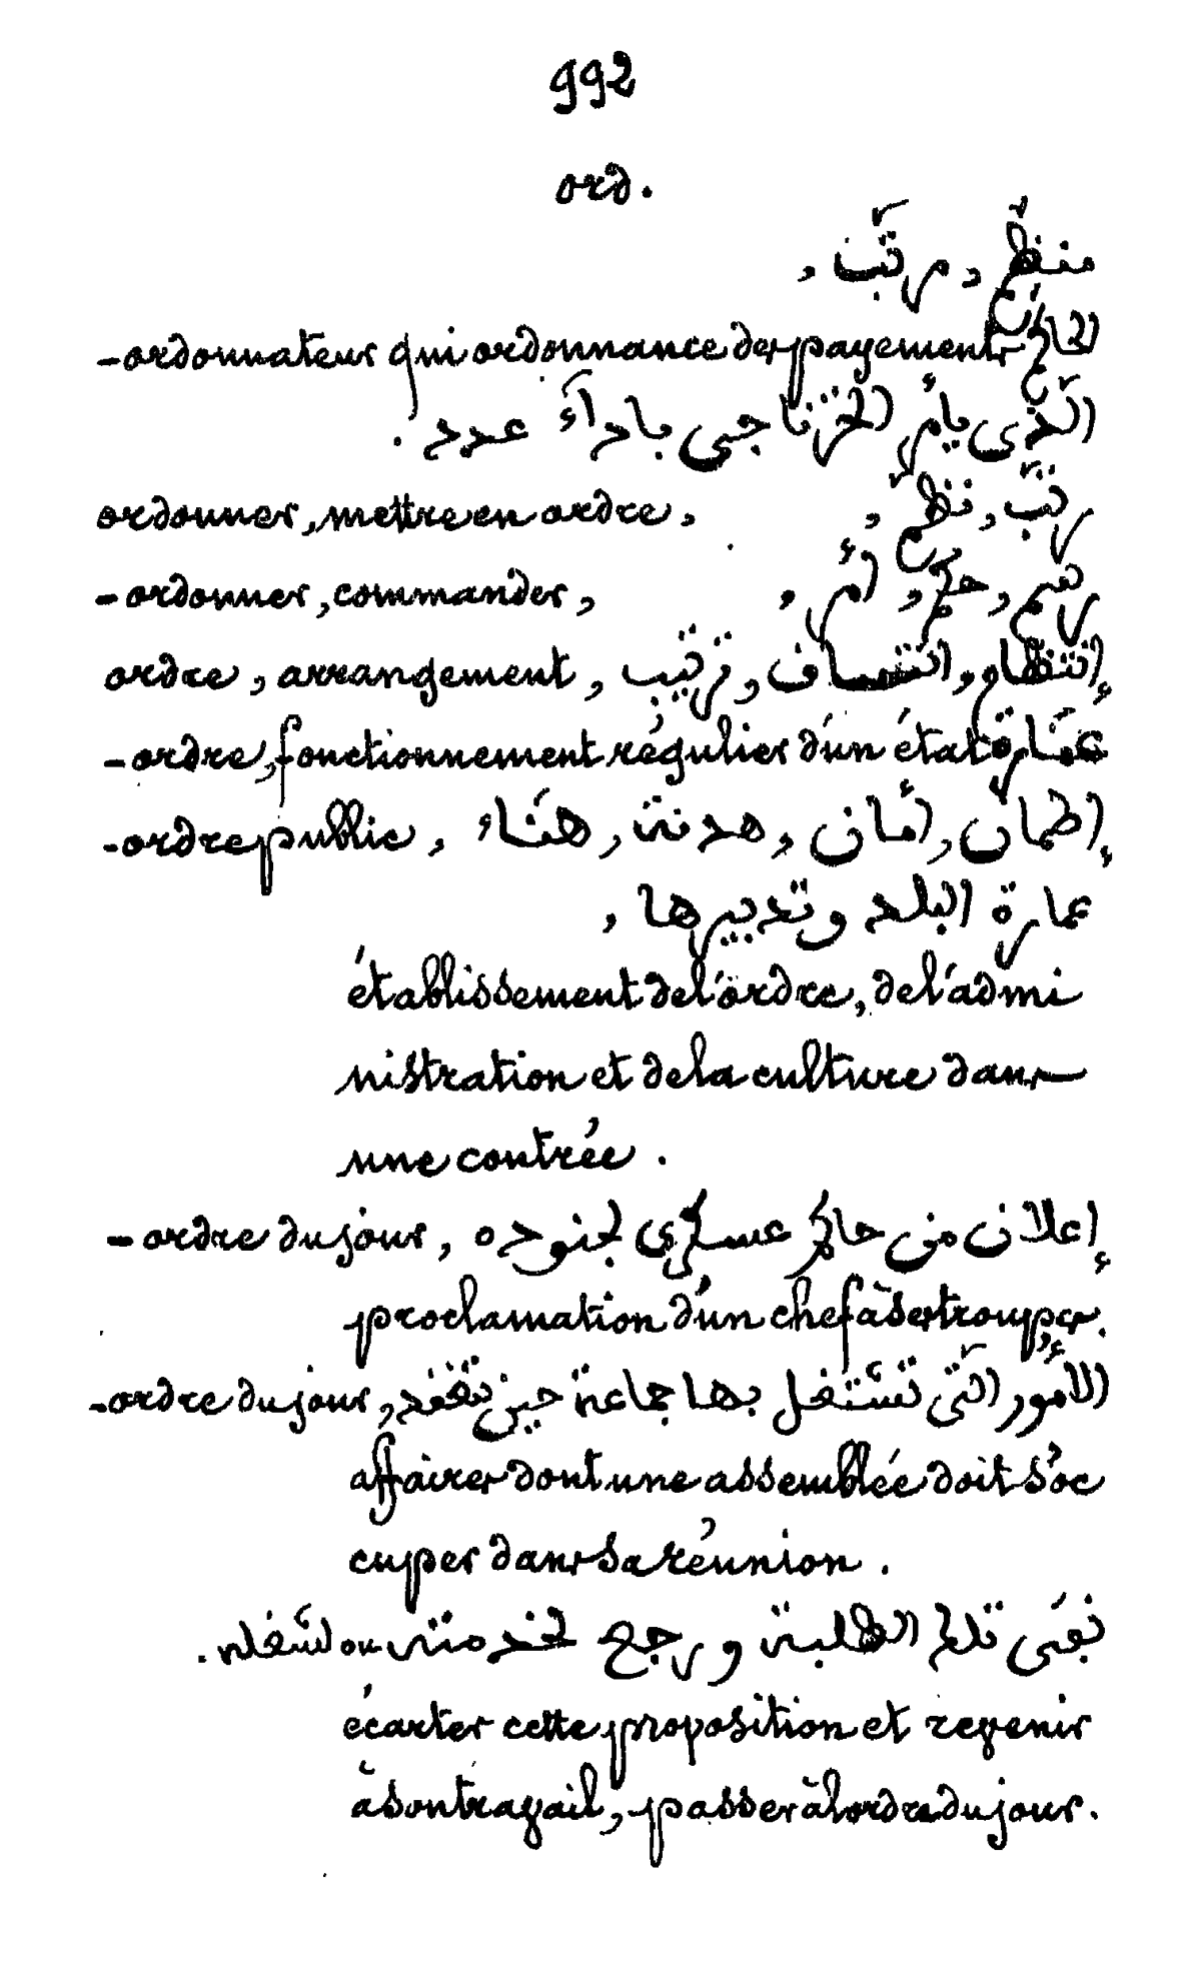 992
ord.
منظّم, مرتّب,
-ordonnateur qui ordonnance des payements الحاكم
الّذى يأمر الخزناجى باداء عدد.
ordonner, mettre en ordre, رتّب, نظّم,
-ordonner, commander, رسم, حكم, أمر,
ordre, arrangement, إنتظام, اتّساف, ترتيب
-ordre, fonctionnement régulier d'un état عمارة
-ordre public, إطمان, أمان, هدنة, هناء
عمارة البلد وتدبيرها,
établissement de l'ordre, de l'admi
nistration et de la culture dans
une contrée.
-ordre du jour, إعلان من حاكم عسكرى لجنوده
proclamation d'un chef à ses troupes.
-ordre du jour, الأمور الّتى تشتغل بها جماعة حين تنعقد
affaires dont une assemblée doit s'oc
cuper dans sa réunion.
نفى تلك الطلبة ورجع لخدمته ou لشغله.
écarter cette proposition et revenir
à son travail, passer à l'ordre du jour.